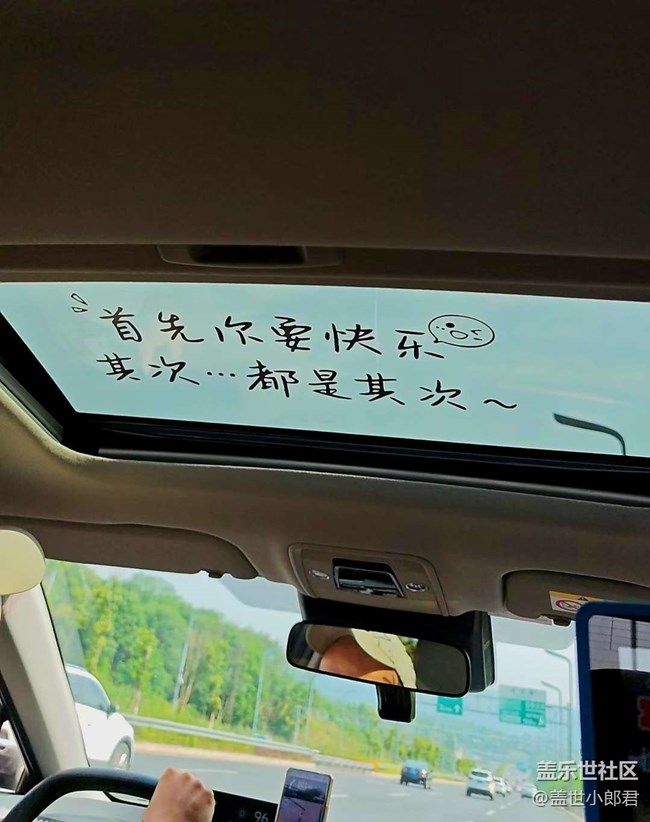 首先你要快乐
其次…都是其次~
96
盖乐世社区
@盖世小郎君